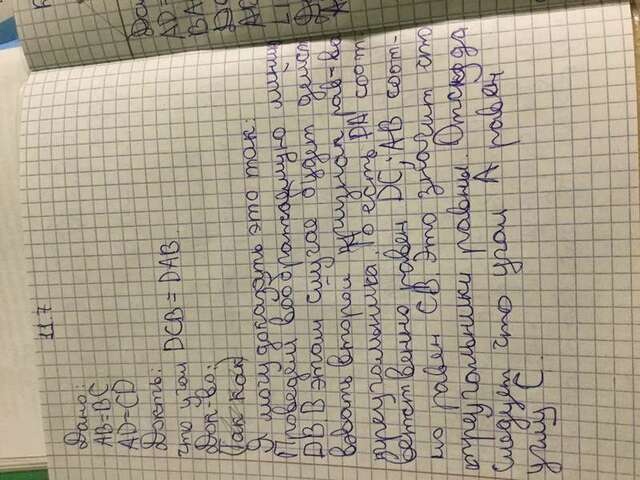 11.7
Дано:
AB=BC
AD=CD
Док-ть:
что угол DCB = DAB.
Док-во:
Так как
Я могу доказать это так:
Проведем воображаемую линию
DB В этом случае будет дейст
вовать второй признак рав-ва
треугольника. То есть DA соот-
ветственно равен DC; AB соот-
но равен CB. Это значит что
треугольники равны. Отсюда
следует, что угол A равен
углу C.
Дан
AD=
BA